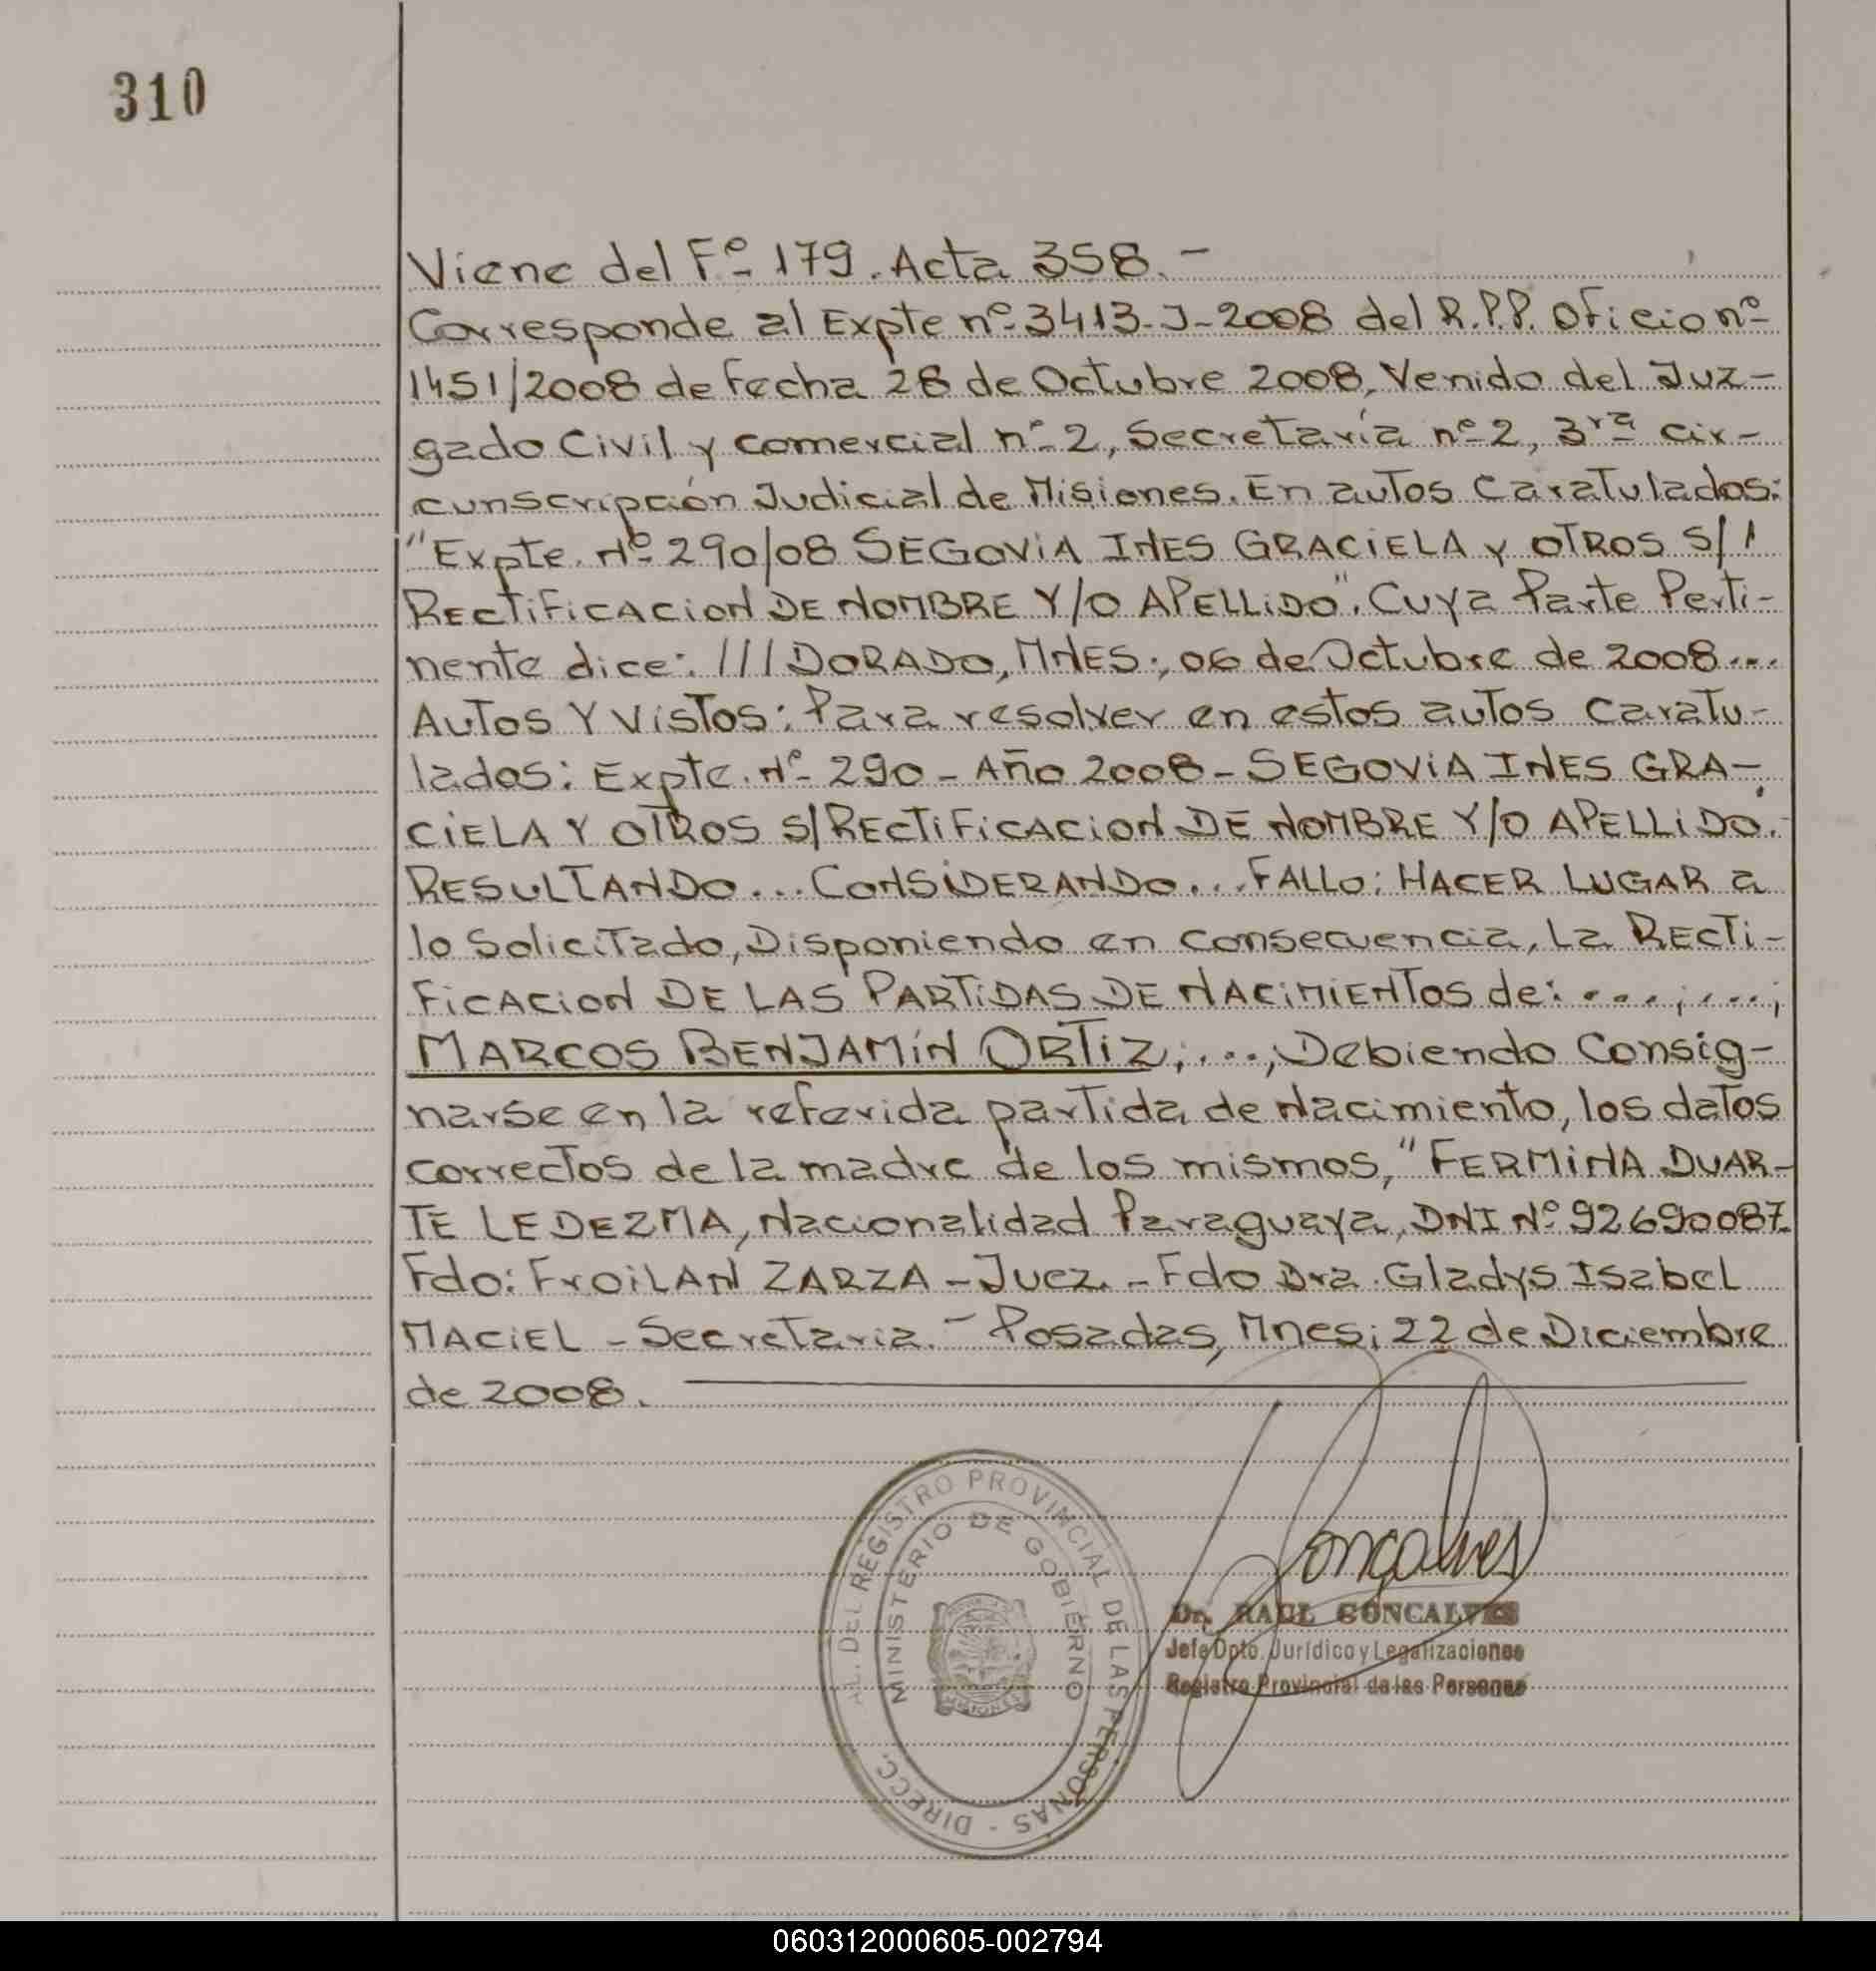 310
Viene del Fº 179. Acta 358.-
Corresponde al Expte nº 3413-J-2008 del R.P.P. Oficio nº
1451/2008 de fecha 28 de Octubre 2008, Venido del Juz-
gado Civil y comercial nº 2, Secretaría nº 2, 3ra cir-
cunscripción Judicial de Misiones. En autos Caratulados:
"Expte. Nº 290/08 SEGOVIA INES GRACIELA y OTROS S/
RECTIFICACION DE NOMBRE Y/O APELLIDO". Cuya Parte Perti-
nente dice: ///DORADO, MNES., 06 de Octubre de 2008...
AUTOS Y VISTOS: Para resolver en estos autos caratu-
lados: Expte. Nº 290 - Año 2008 - SEGOVIA INES GRA-
CIELA Y OTROS S/RECTIFICACION DE NOMBRE Y/O APELLIDO.
RESULTANDO... CONSIDERANDO... FALLO: HACER LUGAR a
lo Solicitado, Disponiendo en consecuencia, La RECTI-
FICACION DE LAS PARTIDAS DE NACIMIENTOS de: ....;....;
MARCOS BENJAMÍN ORTIZ;..., Debiendo Consig-
narse en la referida partida de Nacimiento, los datos
correctos de la madre de los mismos, "FERMINA DUAR-
TE LEDEZMA, Nacionalidad Paraguaya, DNI Nº 92690087.
Fdo: FROILAN ZARZA - Juez. - Fdo Dra. Gladys Isabel
MACIEL - Secretaria. - Posadas, Mnes; 22 de Diciembre
de 2008.
DIRECC. AL. DEL REGISTRO PROVINCIAL DE LAS PERSONAS -
MINISTERIO DE GOBIERNO
MISIONES
Goncalves
Dr. RAUL GONCALVES
Jefe Dpto. Jurídico y Legalizaciones
Registro Provincial de las Personas
060312000605-002794